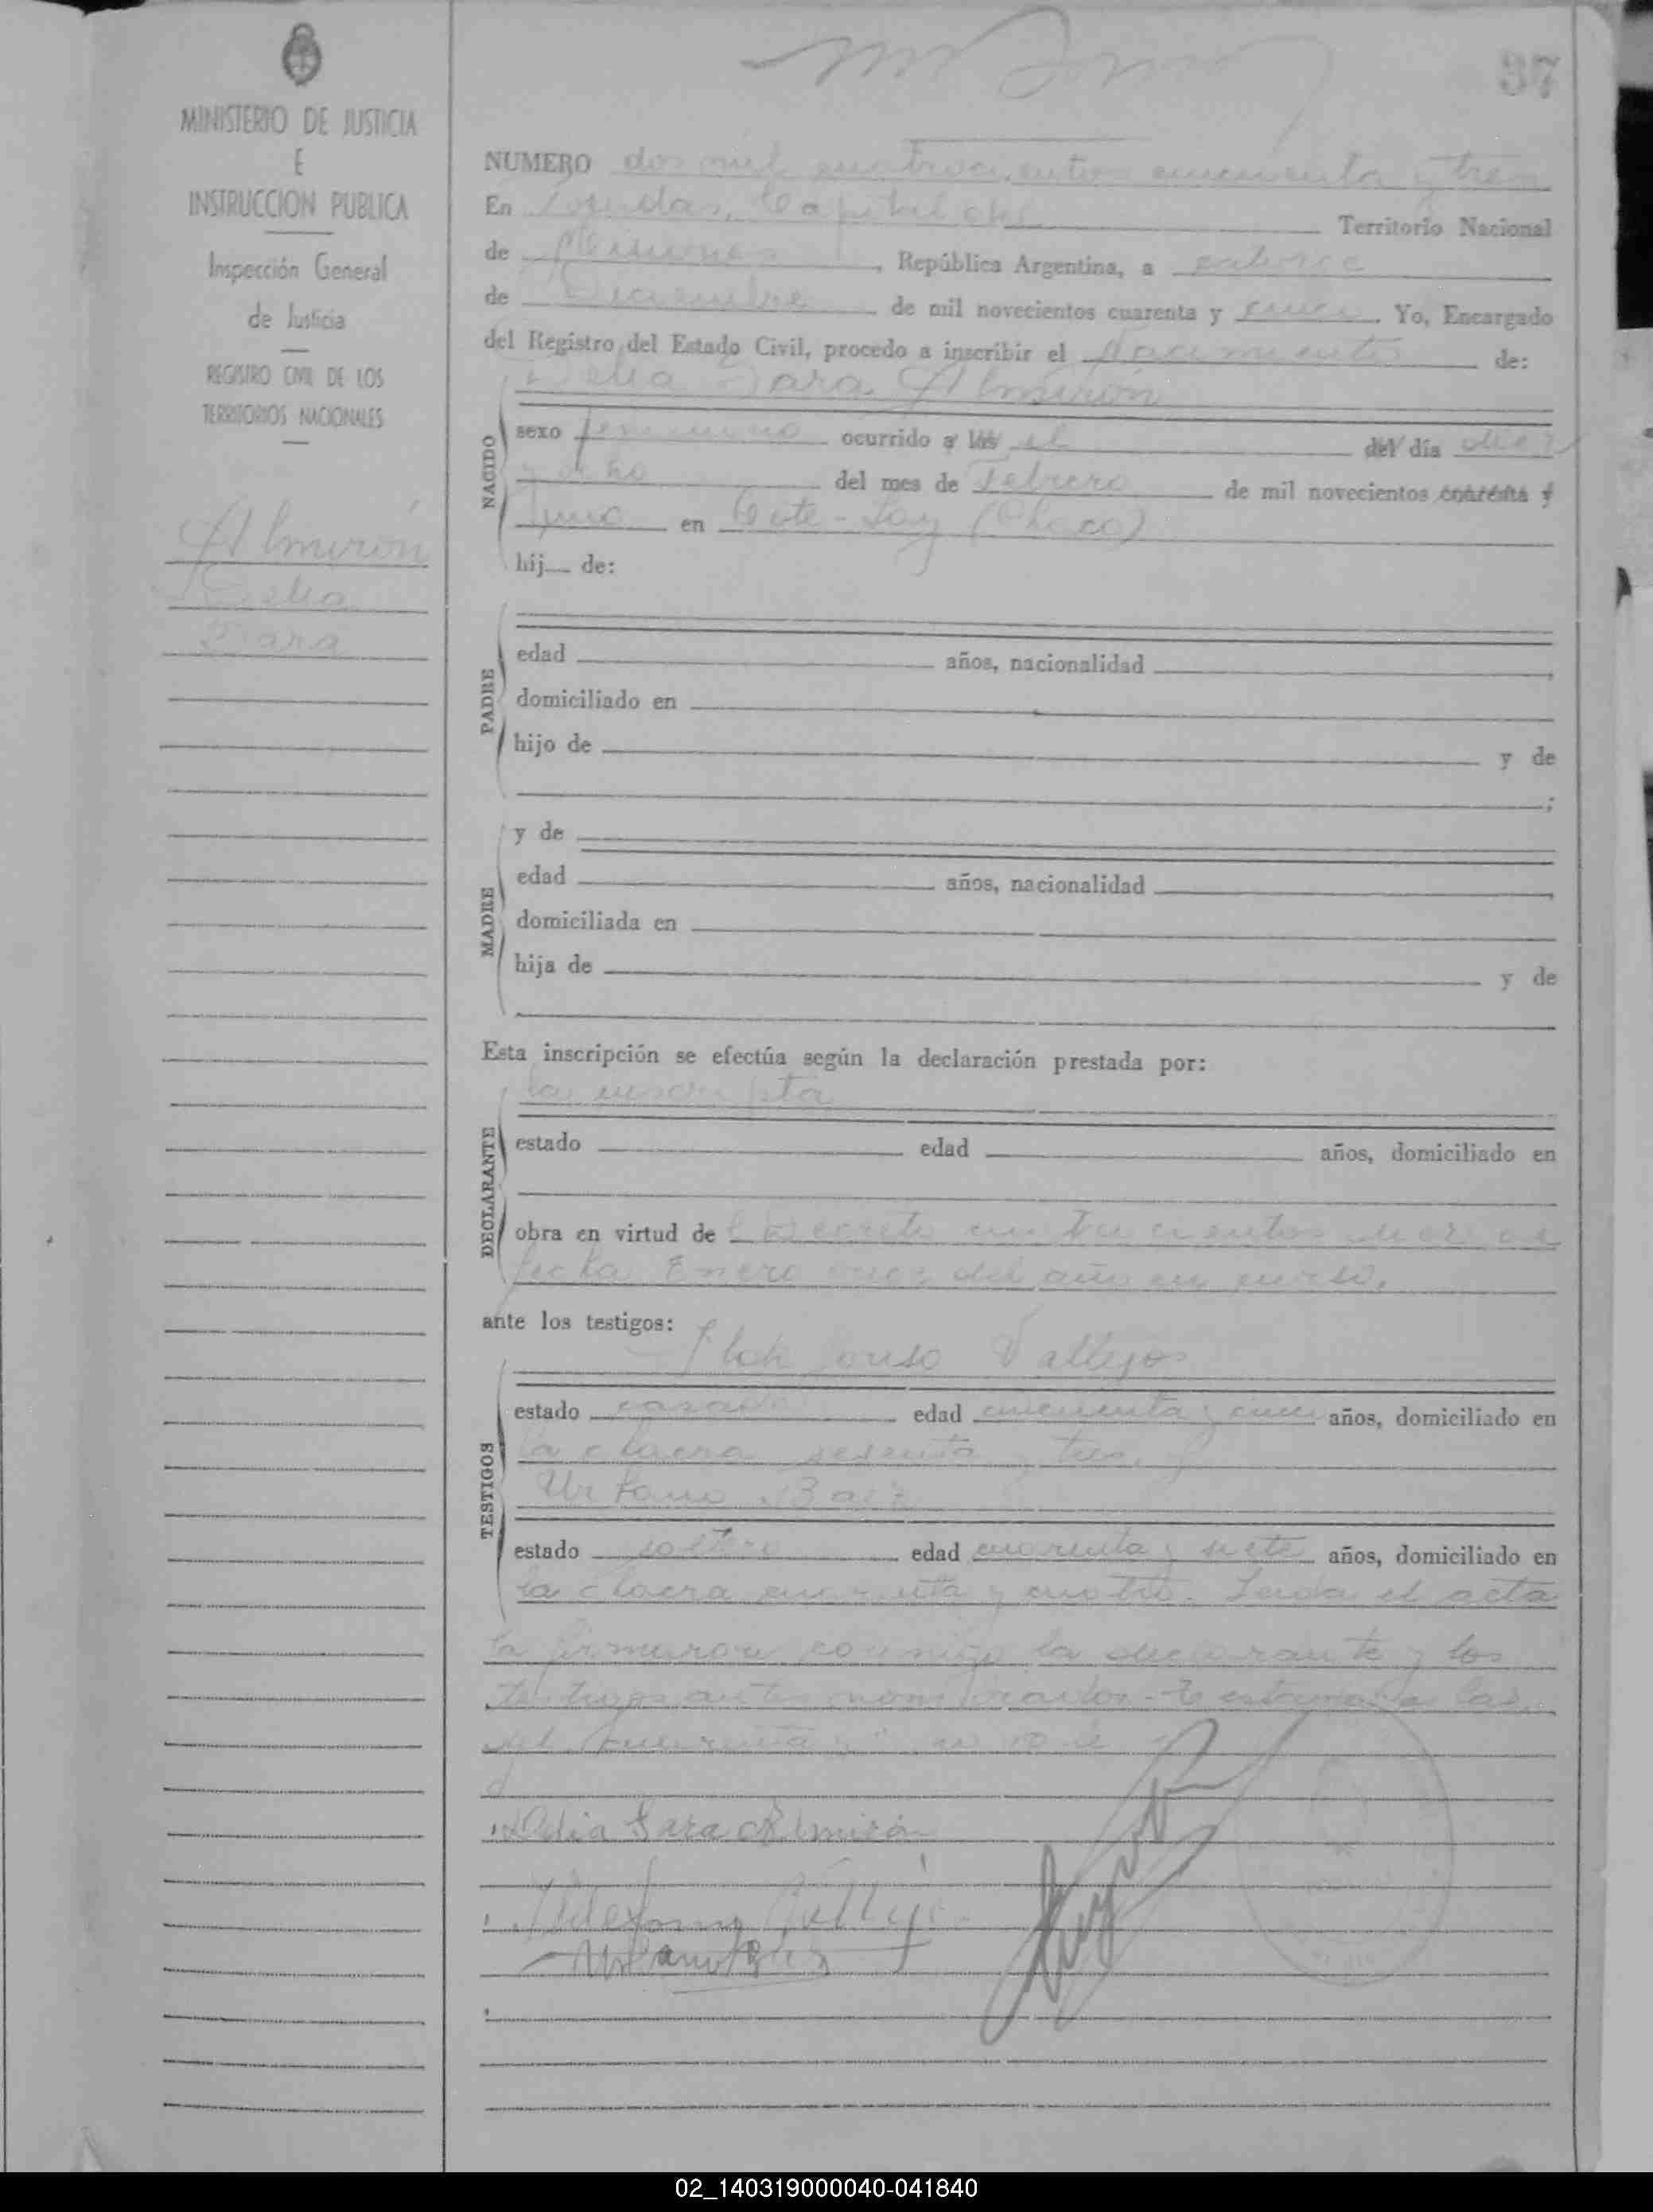 37
MINISTERIO DE JUSTICIA
E
INSTRUCCION PUBLICA
Inspección General
de Justicia
REGISTRO CIVIL DE LOS
TERRITORIOS NACIONALES
Almirón
Delia
Sara
NUMERO dos mil cuatrocientos cincuenta y tres
En Posadas, Capital del Territorio Nacional
de Misiones, República Argentina, a catorce
de Diciembre de mil novecientos cuarenta y cinco. Yo, Encargado
del Registro del Estado Civil, procedo a inscribir el Nacimiento de:
Delia Sara Almirón
NACIDO
sexo femenino ocurrido a las el del día diez
y ocho del mes de Febrero de mil novecientos cuarenta y
en Cote-Lay (Chaco)
hij de:
PADRE
edad años, nacionalidad
domiciliado en
hijo de y de
;
MADRE
y de
edad años, nacionalidad
domiciliada en
hija de y de
Esta inscripción se efectúa según la declaración prestada por:
la inscripta
DECLARANTE
estado edad años, domiciliado en
obra en virtud de l Decreto
fecha Enero del año en curso.
ante los testigos:
Vallejos
TESTIGOS
estado casado edad cincuenta y cinco años, domiciliado en
la chacra sesenta y tres, y
Urbano Baez
estado soltero edad cuarenta y siete años, domiciliado en
la chacra cuarenta y cuatro. Leida el acta
la firmaron conmigo la declarante y los
testigos antes nombrados.
Delia Sara Almirón
Ildefonso Vallejos
Urbano Baez
02_140319000040-041840